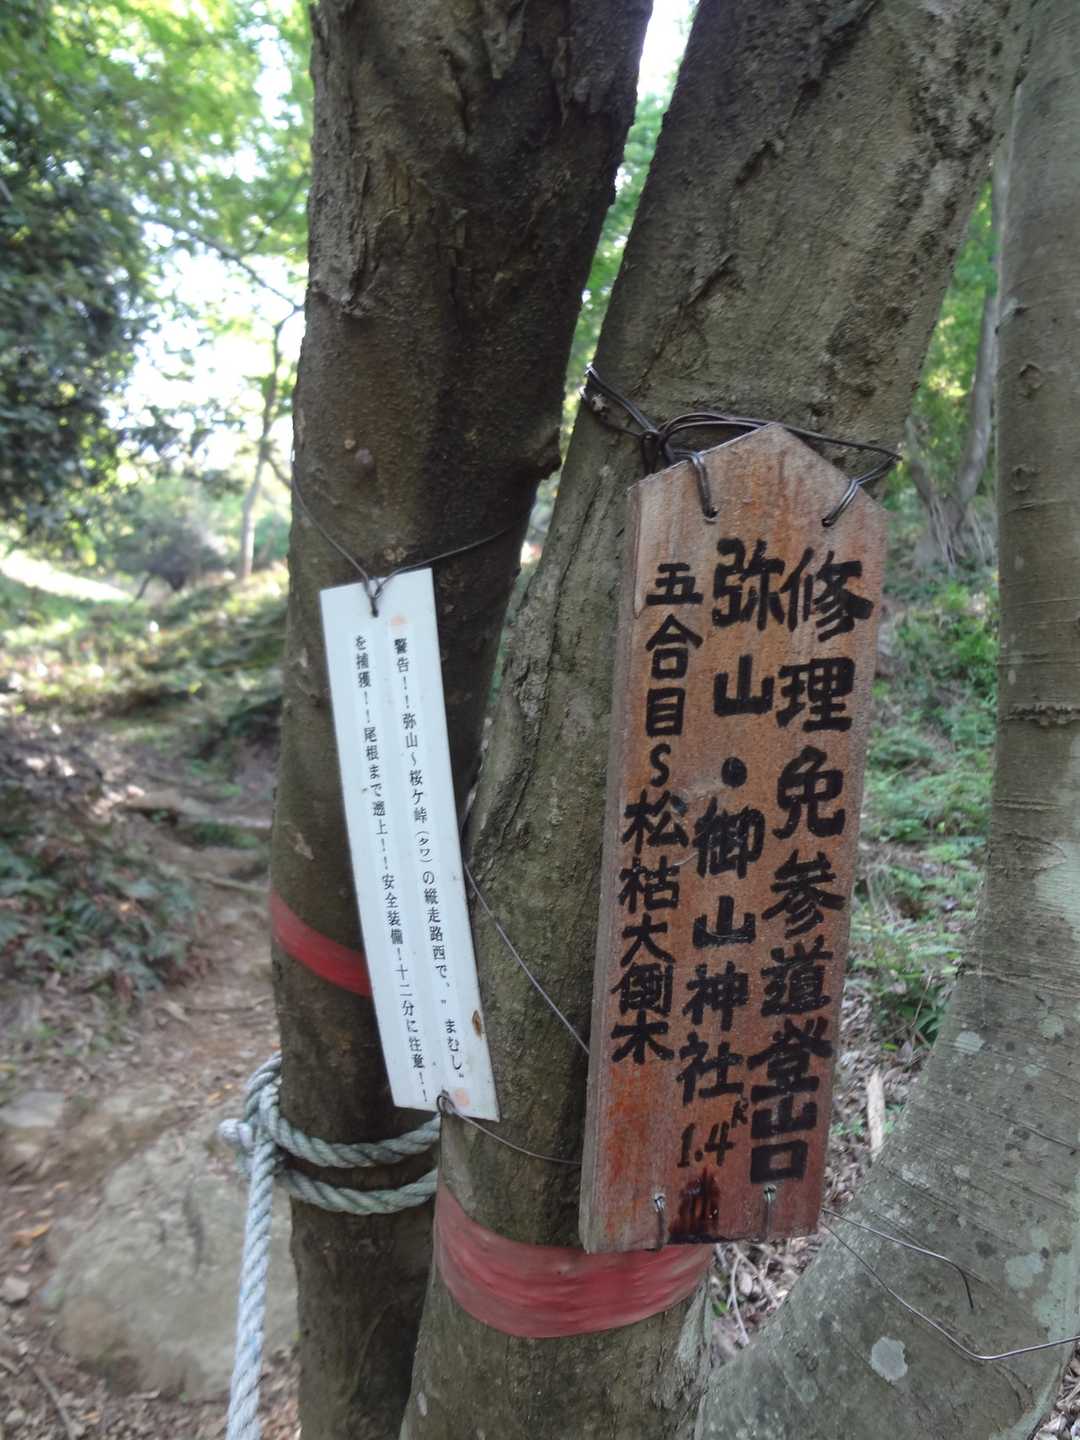 修理免参道登山口
弥山・御山神社1.4K
五合目~松枯大倒木
警告!!弥山~桜ケ峠(タワ)の縦走路西で、"まむし"
を捕獲!!尾根まで遡上!!安全装備!十二分に注意!!